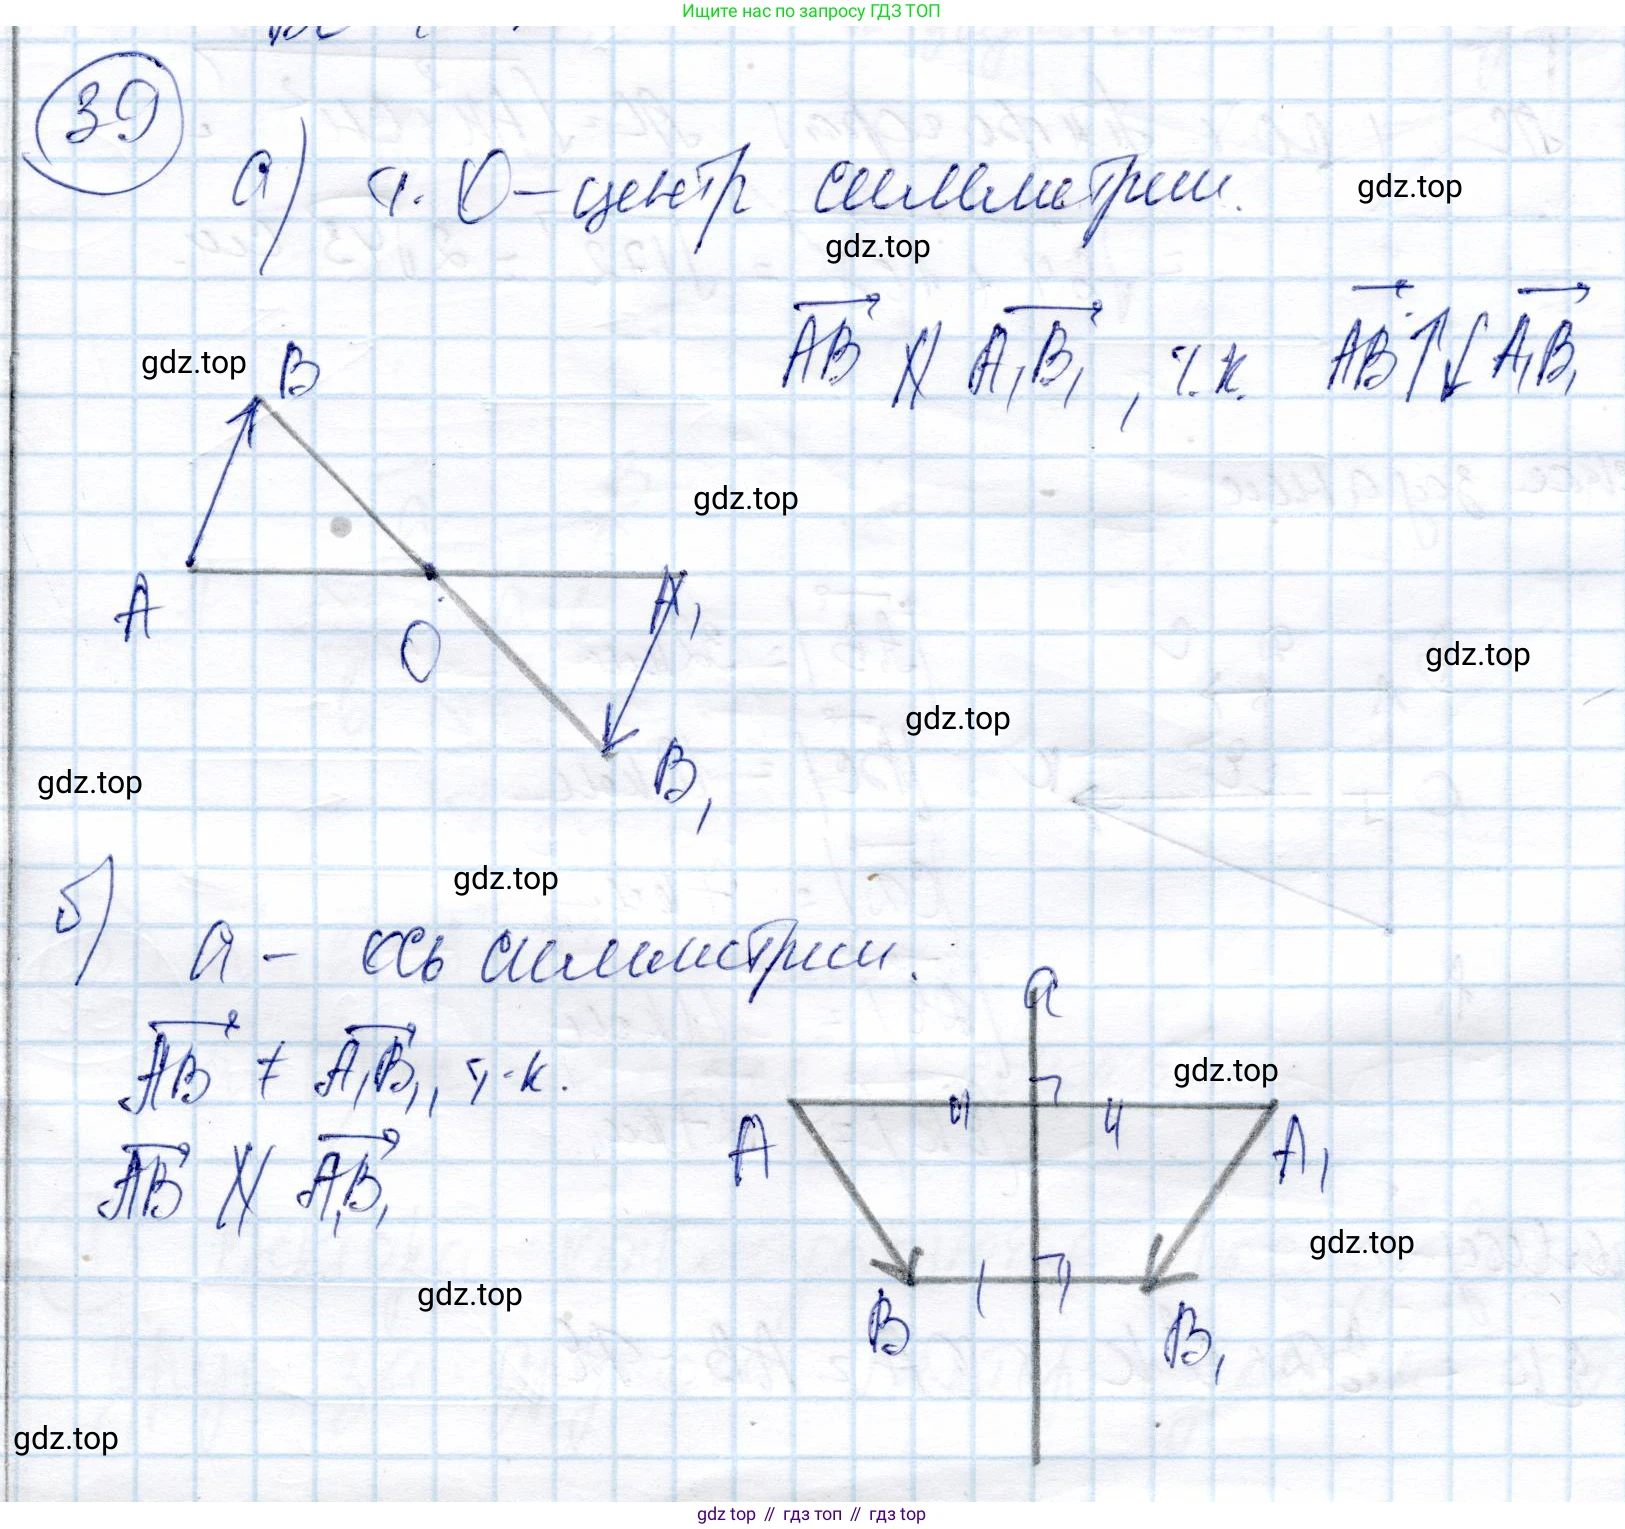 Ищите нас по запросу ГДЗ ТОП
39
а) т. О – центр симметрии.
gdz.top
gdz.top
AB ∦ A₁B₁, т.к. AB ↑↓ A₁B₁
gdz.top
B
gdz.top
A
O
A₁
gdz.top
gdz.top
B₁
gdz.top
gdz.top
б)
a – ось симметрии.
a
AB ≠ A₁B₁, т.к.
gdz.top
A
A₁
AB ∦ A₁B₁
gdz.top
gdz.top
B
B₁
gdz.top
gdz.top // гдз топ // гдз top